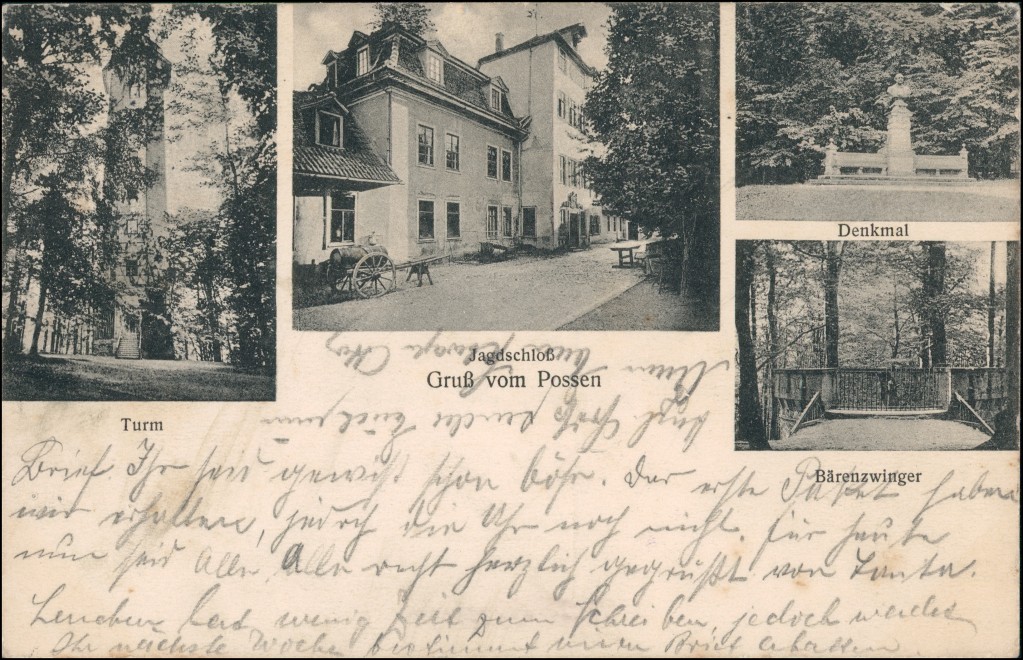 Denkmal
Jagdschloß
Gruß vom Possen
Turm
Bärenzwinger
Brief. Ihr seid gewiß schon böse. Das erste Paket haben
wir erhalten, jedoch die Uhr noch nicht. Für heute
nun seid Alle, Alle recht herzlich gegrüßt von Tante.
Lenchen hat wenig Zeit zum Schreiben, jedoch werdet
Ihr nächste Woche bestimmt einen Brief erhalten.